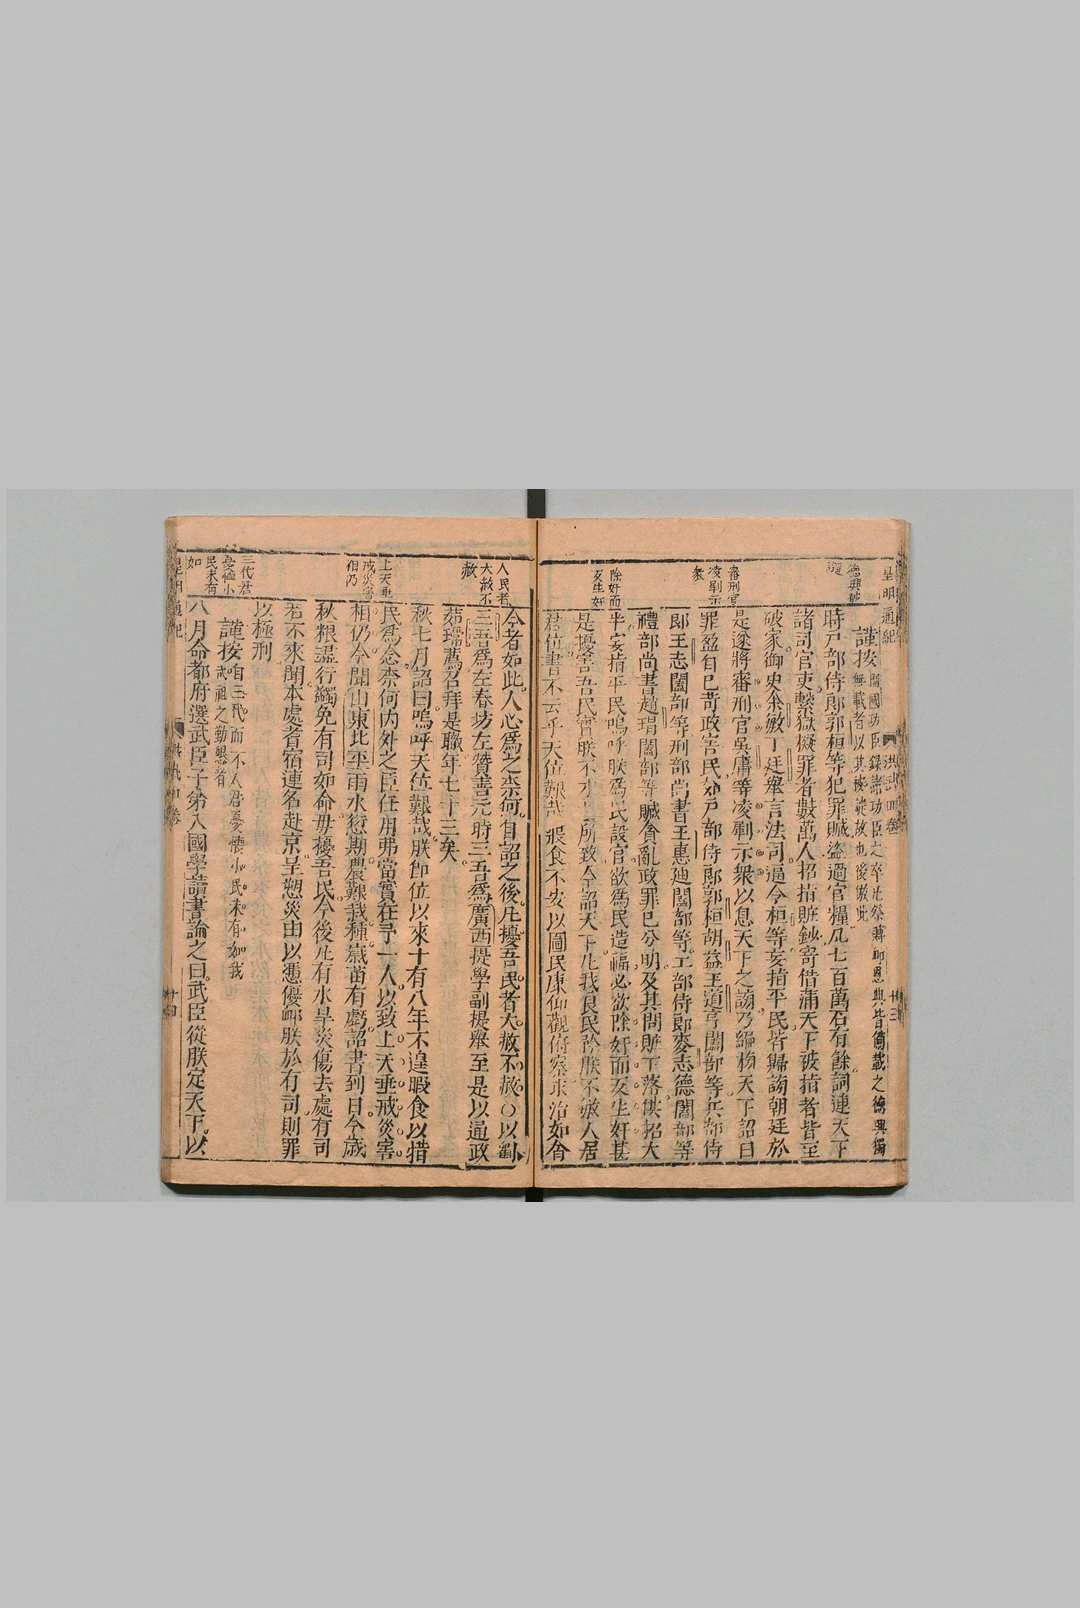 皇明通紀
謹按開國功臣錄諸功臣之卒皆祭葬卹恩典皆備載之德興獨
無載者以其被誅故也後倣此
時戶部侍郎郭桓等犯罪贓盜過官糧凡七百萬石有餘詞連天下
諸司官吏繫獄擬罪者數萬人招指賍鈔寄借滿天下被指者皆至
破家御史余敏丁廷舉言法司逼令桓等妄指平民皆歸謗朝廷於
是遂將審刑官吳庸等凌剮示衆以息天下之謗乃編榜天下詔曰
罪盈自已苛政害民如戶部侍郎郭桓胡益王道亨闔部等兵部侍
郎王志闔部等刑部尚書王惠廸闔部等工部侍郎麥志德闔部等
禮部尚書趙瑁闔部等贓貪亂政罪已分明及其問賍下落供招大
半妄指平民嗚呼朕爲民設官欲爲民造福必欲除奸而反生奸甚
是擾害吾民實朕不才所致今詔天下凡我良民於朕不敏人居
君位書不云乎天位艱哉寢食不安以圖民康仰觀俯察求治如會
審刑官
凌剮示
衆
除奸而
反生奸
人民者
大赦不
赦
今者如此人心爲之奈何自詔之後凡擾吾民者大赦不赦○以劉
三吾爲左春坊左贊善元時三吾爲廣西提學副提舉至是以通政
茹瑺薦召拜是職年七十三矣
秋七月詔曰嗚呼天位艱哉朕卽位以來十有八年不遑暇食以惜
民爲念奈何内外之臣任用弗當實在予一人以致上天垂戒災害
相仍今聞山東北平雨水愆期農艱栽種嵗苗有虧詔書到日今歲
秋粮盡行蠲免有司如命毋擾吾民今後凡有水旱災傷去處有司
若不來聞本處耆宿連名赴京呈愬災由以憑優䘏朕於有司則罪
以極刑
謹按自三代而下人君憂懷小民未有如我
武祖之勤懇者
八月命都府選武臣子弟入國學讀書諭之曰武臣從朕定天下以
上天垂
戒災害
相仍
三代君
憂恤小
民未有
如